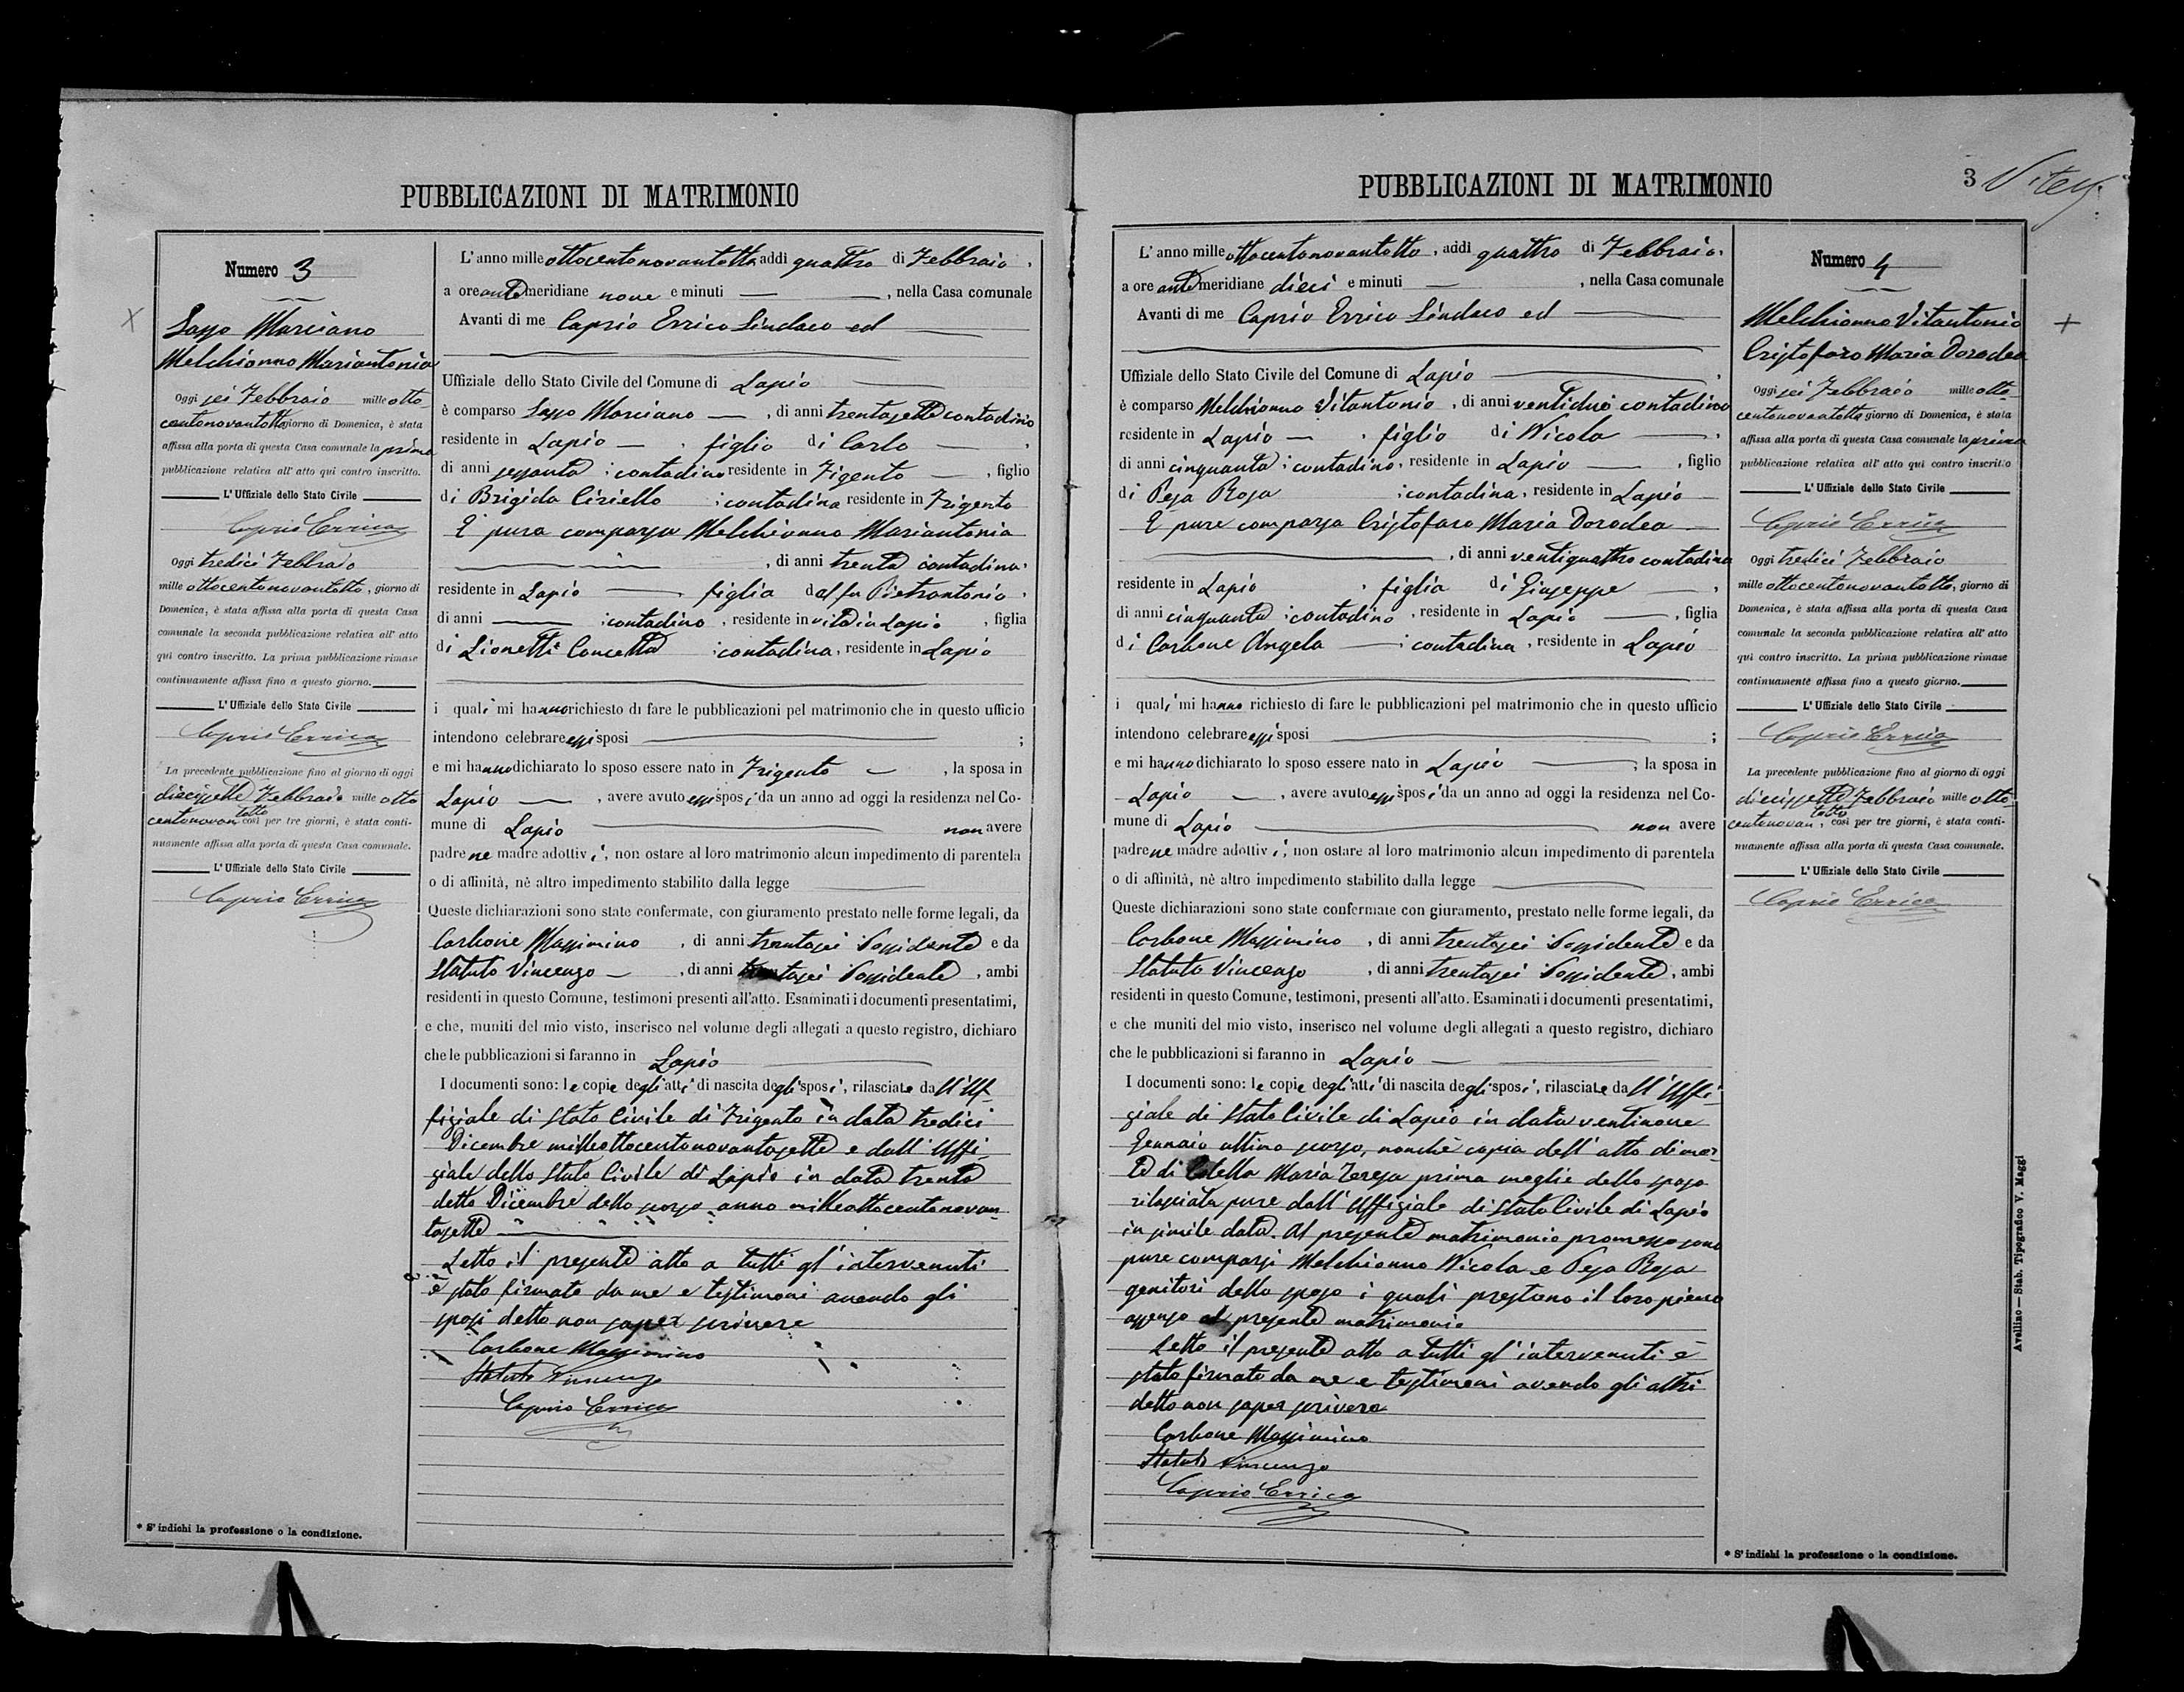 PUBBLICAZIONI DI MATRIMONIO
Numero 3
Sasso Marciano
Melchionno Mariantonia
Oggi sei Febbraio mille otto-
centonovantotto giorno di Domenica, è stata
affissa alla porta di questa Casa comunale la prima
pubblicazione relativa all' atto qui contro inscritto.
L' Uffiziale dello Stato Civile
Caprio Errico
Oggi tredici Febbraio
mille ottocentonovantotto, giorno di
Domenica, è stata affissa alla porta di questa Casa
comunale la seconda pubblicazione relativa all' atto
qui contro inscritto. La prima pubblicazione rimase
continuamente affissa fino a questo giorno.
L' Uffiziale dello Stato Civile
Caprio Errico
La precedente pubblicazione fino al giorno di oggi
diecissette Febbraio mille otto
centonovantotto così per tre giorni, è stata conti-
nuamente affissa alla porta di questa Casa comunale.
L' Uffiziale dello Stato Civile
Caprio Errico
* S' indichi la professione o la condizione.
L' anno mille ottocentonovantotto addì quattro di Febbraio,
a ore antemeridiane nove e minuti — , nella Casa comunale
Avanti di me Caprio Errico Sindaco ed
Uffiziale dello Stato Civile del Comune di Lapio
è comparso Sasso Marciano — , di anni trentasette contadino
residente in Lapio — , figlio di Carlo
di anni sessanta ; contadino residente in Figento — , figlio
di Brigida Ciriello ; contadina residente in Frigento
E pure comparsa Melchionno Mariantonia
, di anni trenta contadina,
residente in Lapio — , figlia dal fu Pietrantonio,
di anni — ; contadino , residente in vita in Lapio , figlia
di Lionetti Concetta ; contadina, residente in Lapio
i quali mi hanno richiesto di fare le pubblicazioni pel matrimonio che in questo ufficio
intendono celebrare essi sposi ;
e mi hanno dichiarato lo sposo essere nato in Frigento — , la sposa in
Lapio — , avere avuto essi sposi da un anno ad oggi la residenza nel Co-
mune di Lapio non avere
padre ne madre adottivi, non ostare al loro matrimonio alcun impedimento di parentela
o di affinità, nè altro impedimento stabilito dalla legge
Queste dichiarazioni sono state confermate, con giuramento prestato nelle forme legali, da
Carbone Massimino , di anni trentasei Possidente e da
Statuto Vincenzo — , di anni trentasei Possidente , ambi
residenti in questo Comune, testimoni presenti all'atto. Esaminati i documenti presentatimi,
e che, muniti del mio visto, inserisco nel volume degli allegati a questo registro, dichiaro
che le pubblicazioni si faranno in Lapio
I documenti sono: le copie degli atti di nascita degli sposi, rilasciate dall' Uf-
fiziale di Stato Civile di Frigento in data tredici
Dicembre milleottocentonovantasette e dall' Uffi-
ziale dello Stato Civile di Lapio in data trenta
detto Dicembre dello scorso anno milleottocentonovan-
tasette
Letto il presente atto a tutti gl' intervenuti
è stato firmato da me e testimoni avendo gli
sposi detto non saper scrivere
Carbone Massimino
Statuto Vincenzo
Caprio Errico
PUBBLICAZIONI DI MATRIMONIO
3
L' anno mille ottocentonovantotto, addì quattro di Febbraio,
a ore antemeridiane dieci e minuti — , nella Casa comunale
Avanti di me Caprio Errico Sindaco ed
Uffiziale dello Stato Civile del Comune di Lapio
è comparso Melchionno Vitantonio , di anni ventidue contadino
residente in Lapio — , figlio di Nicola
di anni cinquanta ; contadino, residente in Lapio — , figlio
di Pesa Rosa ; contadina, residente in Lapio
E pure comparsa Cristofaro Maria Dorodea
, di anni ventiquattro contadina
residente in Lapio , figlia di Giuseppe
di anni cinquanta ; contadino , residente in Lapio — , figlia
di Carbone Angela — ; contadina , residente in Lapio
i quali mi hanno richiesto di fare le pubblicazioni pel matrimonio che in questo ufficio
intendono celebrare essi sposi ;
e mi hanno dichiarato lo sposo essere nato in Lapio , la sposa in
Lapio — , avere avuto essi sposi da un anno ad oggi la residenza nel Co-
mune di Lapio non avere
padre ne madre adottivi, non ostare al loro matrimonio alcun impedimento di parentela
o di affinità, nè altro impedimento stabilito dalla legge
Queste dichiarazioni sono state confermate con giuramento, prestato nelle forme legali, da
Carbone Massimino , di anni trentasei Possidente e da
Statuto Vincenzo , di anni trentasei Possidente, ambi
residenti in questo Comune, testimoni, presenti all'atto. Esaminati i documenti presentatimi,
e che muniti del mio visto, inserisco nel volume degli allegati a questo registro, dichiaro
che le pubblicazioni si faranno in Lapio
I documenti sono: le copie degli atti di nascita degli sposi, rilasciate dall' Uffi-
ziale di Stato Civile di Lapio in data ventinove
Gennaio ultimo scorso, nonchè copia dell' atto di mor-
te di Maria Teresa prima moglie dello sposo
rilasciata pure dall' Uffiziale di Stato Civile di Lapio
in simile data. Al presente matrimonio promesso sono
pure comparsi Melchionno Nicola e Pesa Rosa
genitori dello sposo i quali prestano il loro pieno
assenso al presente matrimonio
Letto il presente atto a tutti gl' intervenuti è
stato firmato da me e testimoni avendo gli altri
detto non saper scrivere
Carbone Massimino
Statuto Vincenzo
Caprio Errico
Numero 4
Melchionno Vitantonio
Cristofaro Maria Dorodea
Oggi sei Febbraio mille otto-
centonovantotto giorno di Domenica, è stata
affissa alla porta di questa Casa comunale la prima
pubblicazione relativa all' atto qui contro inscritto
L' Uffiziale dello Stato Civile
Caprio Errico
Oggi tredici Febbraio
mille ottocentonovantotto, giorno di
Domenica, è stata affissa alla porta di questa Casa
comunale la seconda pubblicazione relativa all' atto
qui contro inscritto. La prima pubblicazione rimase
continuamente affissa fino a questo giorno.
L' Uffiziale dello Stato Civile
Caprio Errico
La precedente pubblicazione fino al giorno di oggi
diecissette Febbraio mille otto
centonovantotto, così per tre giorni, è stata conti-
nuamente affissa alla porta di questa Casa comunale.
L' Uffiziale dello Stato Civile
Caprio Errico
* S' indichi la professione o la condizione.
Avellino — Stab. Tipografico V. Maggi